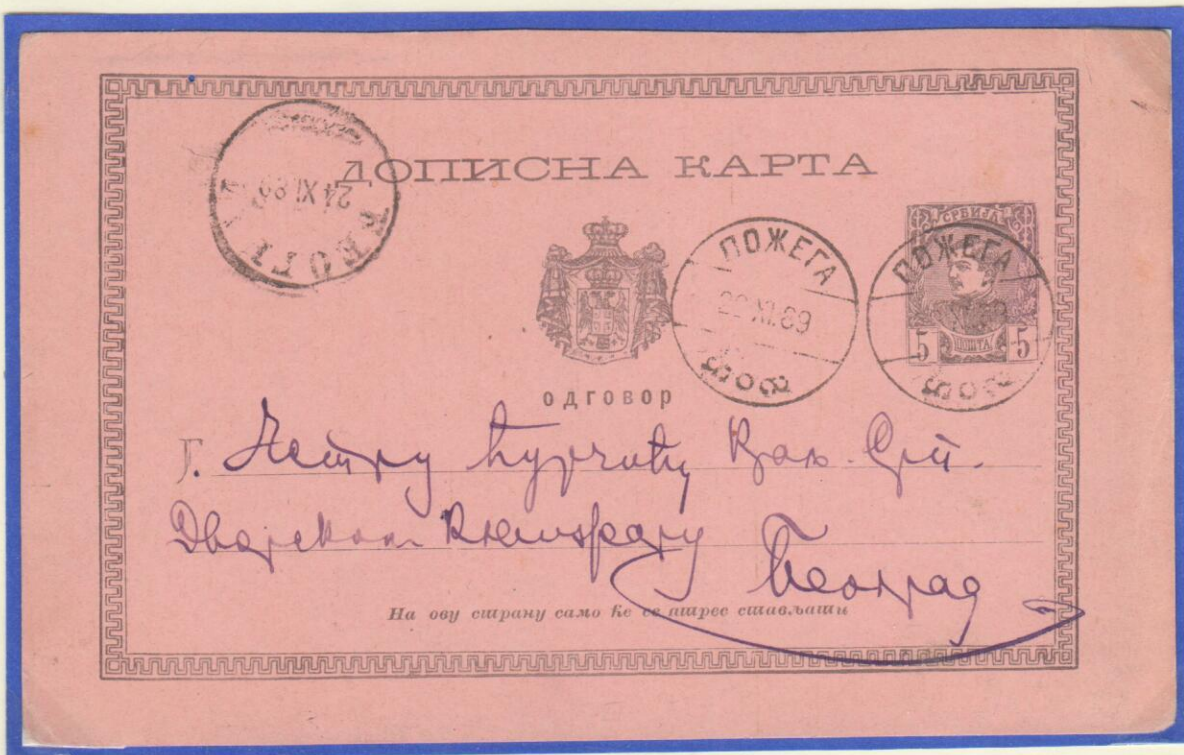 ДОПИСНА КАРТА
24 XI 89
СРБИЈА
ПОЖЕГА
XI.89
ПОЖЕГА
5 ПОШТА 5
ОДГОВОР
Г. Петру Ћурчићу Краљ. Срп.
Дворском Књижару
Београд
На ову страну само ће се адрес стављати